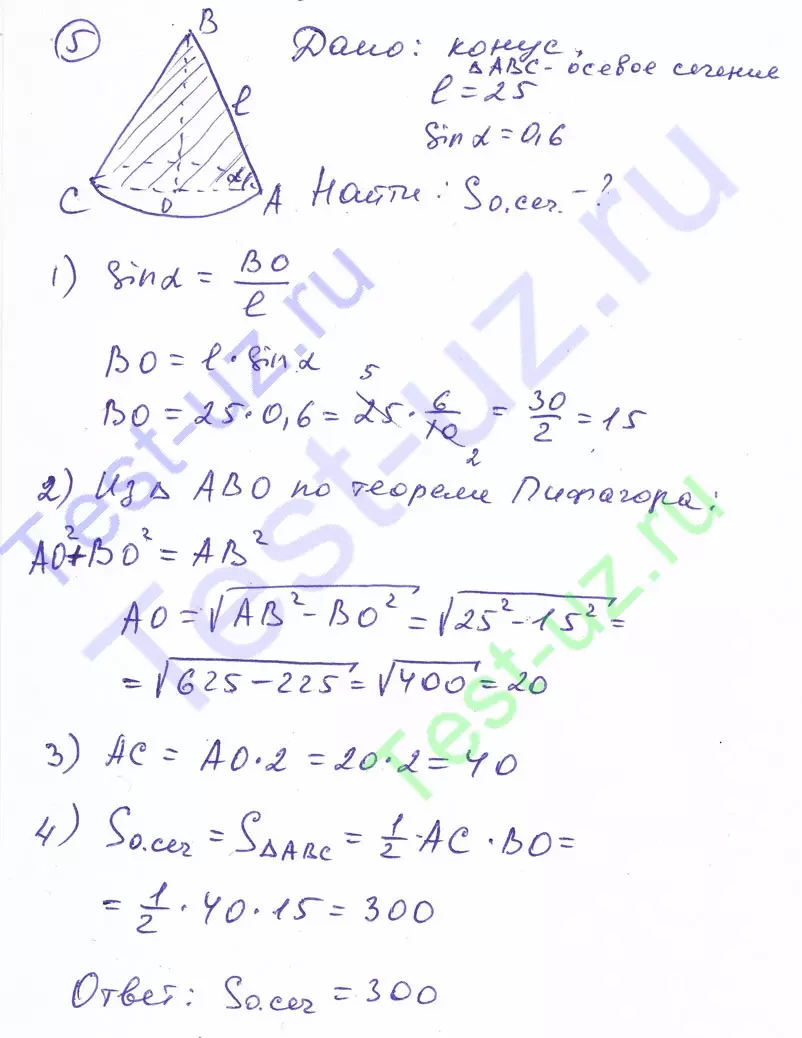 5
B
Дано: конус,
ΔABC - осевое сечение
l = 25
sin α = 0,6
l
α
C
O
A
Найти: Sо.сеч. - ?
1) sin α = BO / l
BO = l · sin α
BO = 25 · 0,6 = 25 · 6/10 = 30/2 = 15
5
2
2) Из Δ ABO по теореме Пифагора:
AO² + BO² = AB²
AO = √(AB² - BO²) = √(25² - 15²) =
= √(625 - 225) = √400 = 20
3) AC = AO · 2 = 20 · 2 = 40
4) Sо.сеч = SΔABC = 1/2 · AC · BO =
= 1/2 · 40 · 15 = 300
Ответ: Sо.сеч = 300
Test-uz.ru
Test-uz.ru
Test-uz.ru